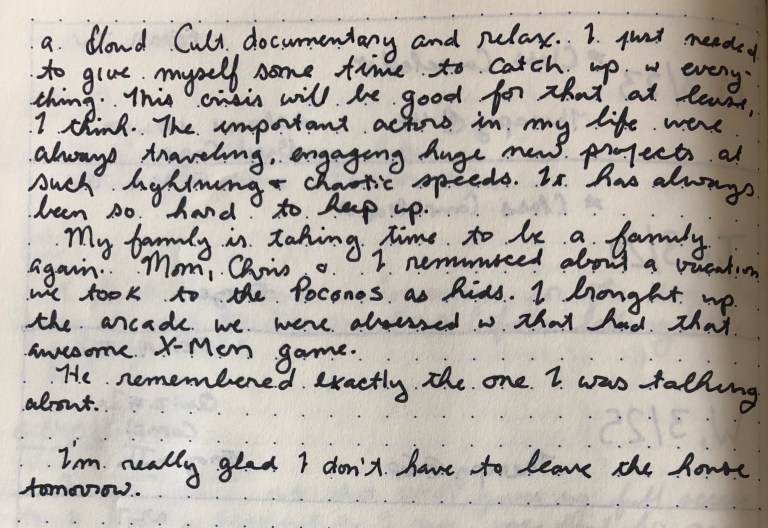 a Cloud Cult documentary and relax. I just needed
to give myself some time to catch up w every-
thing. This crisis will be good for that at least,
I think. The important actors in my life were
always traveling, engaging huge new projects at
such lightning & chaotic speeds. It has always
been so hard to keep up.
My family is taking time to be a family
again. Mom, Chris & I reminisced about a vacation
we took to the Poconos as kids. I brought up
the arcade we were obsessed w that had that
awesome X-Men game.
He remembered exactly the one I was talking
about.
I'm really glad I don't have to leave the house
tomorrow.
W, 3/25